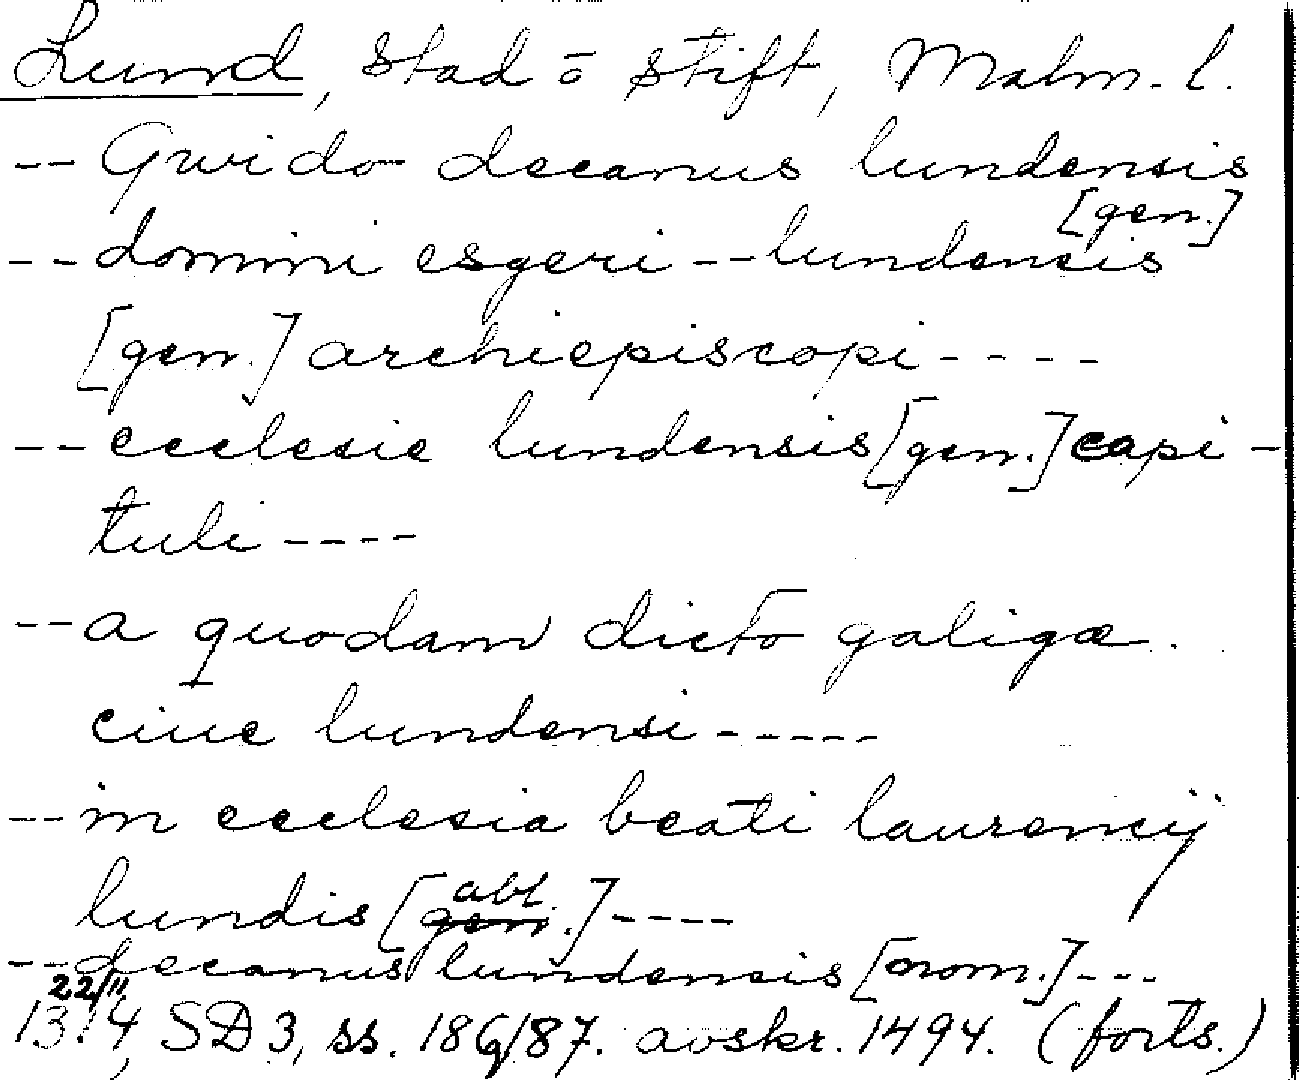 Lund, stad o stift, Malm. l.
-- Gwido decanus lundensis
[gen.]
-- domini esgeri -- lundensis
[gen.] archiepiscopi ----
-- ecclesie lundensis [gen.] capi-
tuli ----
-- a quodam dicto galigæ ..
ciue lundensi -----
-- in ecclesia beati laurencij
lundis [gen. abl.] ----
-- decanus lundensis [nom.] ---
22/11
1314, SD 3, ss. 186/87. avskr. 1494. (forts.)